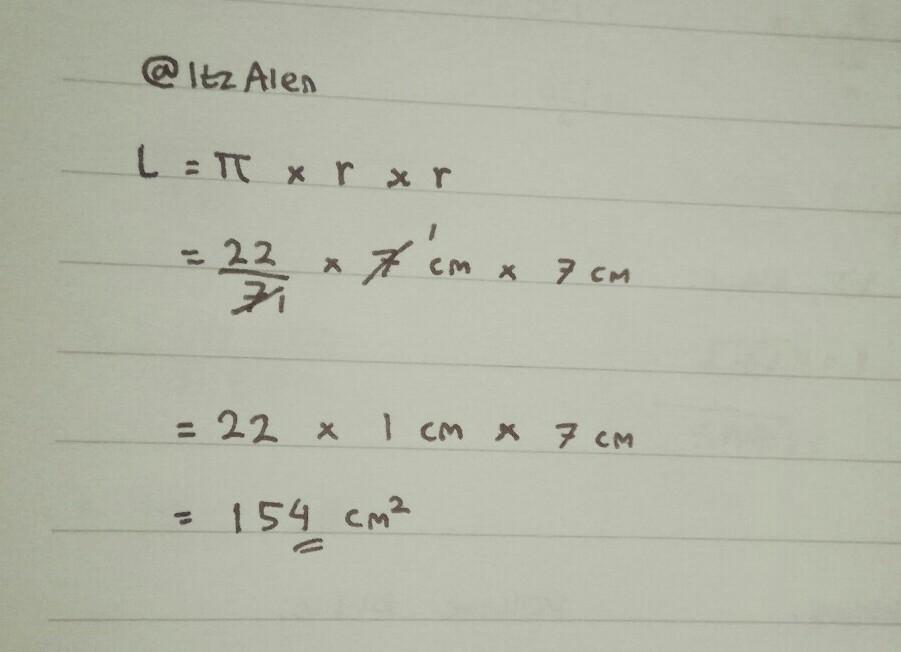 @ItzAlen
L = π × r × r
= 22/7 1 × 7 1 cm × 7 cm
= 22 × 1 cm × 7 cm
= 154 cm²